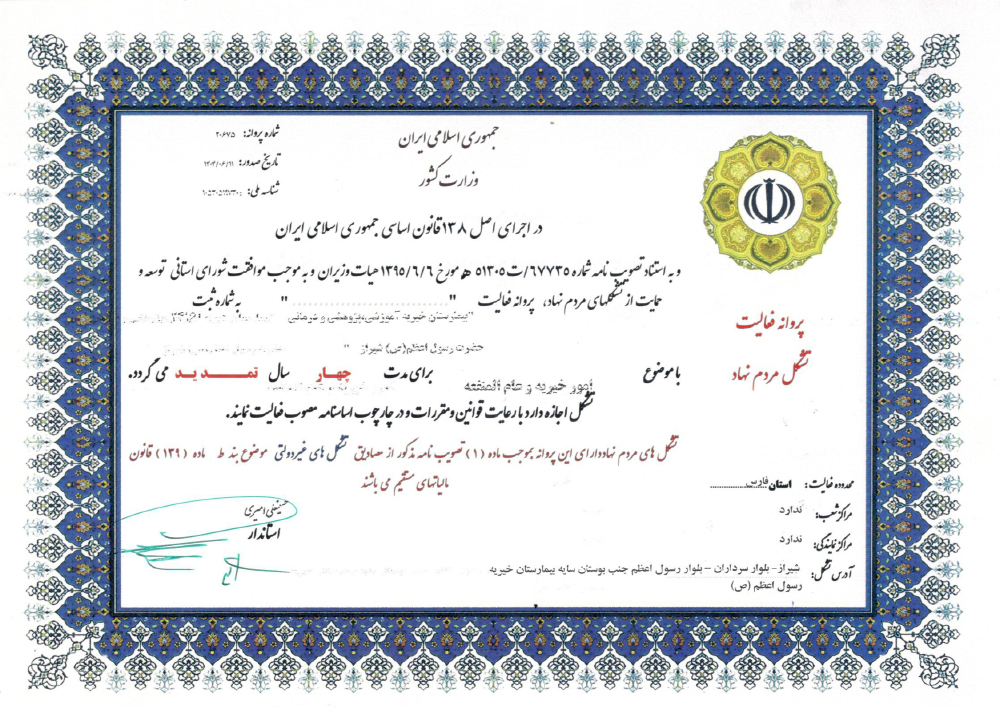 جمهوری اسلامی ایران
وزارت کشور
شماره پروانه: ۲۰۶۷۵
تاریخ صدور: ۱۴۰۴/۰۶/۱۱
شناسه ملی:
در اجرای اصل ۱۳۸ قانون اساسی جمهوری اسلامی ایران
و به استناد تصویب نامه شماره ۶۷۷۳۵/ت۵۱۳۰۵ ه مورخ ۱۳۹۵/۶/۶ هیات وزیران و به موجب موافقت شورای استانی توسعه و
حمایت از تشکلهای مردم نهاد، پروانه فعالیت "......................" به شماره ثبت
"بیمارستان خیریه آموزشی،پژوهشی و درمانی
حضرت رسول اعظم(ص) شیراز "
با موضوع امور خیریه و عام المنفعه برای مدت چهار سال تمدید می گردد.
تشکل اجازه دارد با رعایت قوانین و مقررات و در چارچوب اساسنامه مصوب فعالیت نمایند.
تشکل های مردم نهاد دارای این پروانه بموجب ماده (۱) تصویب نامه مذکور از مصادیق تشکل های غیردولتی موضوع بند ط ماده (۱۳۹) قانون
مالیاتهای مستقیم می باشند
پروانه فعالیت
تشکل مردم نهاد
محدوده فعالیت: استان فارس
مراکز شعب: ندارد
مراکز نمایندگی: ندارد
آدرس تشکل: شیراز- بلوار سرداران – بلوار رسول اعظم جنب بوستان سایه بیمارستان خیریه
رسول اعظم (ص)
حسینعلی امیری
استاندار